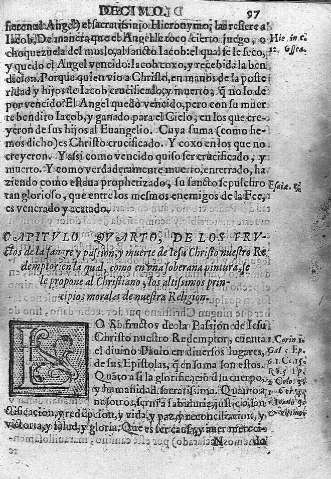 DECIMO. 97
Iacob, De manera que el Angel le toco cierto juego, o
choquezuela del muslo, al sancto Iacob: el qual se le seco,
y quedo el Angel vencido: Iacob coxo, y recebida la ben
dicion. Porque quien vio a Christo, en manos de la poste
ridad y hijos de Iacob, crucificado, y muerto, q̃ no lo de
por vencido? El Angel quedò vencido, pero con su muer
te bendixo Iacob, y ganado para el Cielo, en los que cre
yeron de sus hijos al Euangelio. Cuya suma (como he
mos dicho) es Christo crucificado. Y coxo en los que no
creyeron. Y assi como vencido quiso ser crucificado, y
muerto. Y como verdaderamente muerto, enterrado, ha
ziendo como estaua prophetizado, su sancto sepulchro
tan glorioso, que entre los mesmos enemigos de la Fee,
es venerado y acatado.
Esaiæ.
CAPITVLO QVARTO, DE LOS FRV-
ctos de la sangre y passion, y muerte de Iesu Christo nuestro Re
demptor: en la qual, como en vna soberana pintura, se
le propone al Christiano, los altissimos prin-
cipios morales de nuestra Religion.
LOS fructos de la Passion de Iesu
Christo nuestro Redemptor, cuenta
el diuino Paulo en diuersos lugares,
de sus Epistolas, q̃ en suma son estos.
Quãto a si la glorificaciõ d̃ su cuerpo,
y humanidad sacratissima. Quanto a
nosotros, sernos sabiduria, justicia, san
ctificacion, y redẽpcion, y vida, y paz, y reconciliacion, y
victoria, y salud, y gloria. Que es ser causa, y
N do